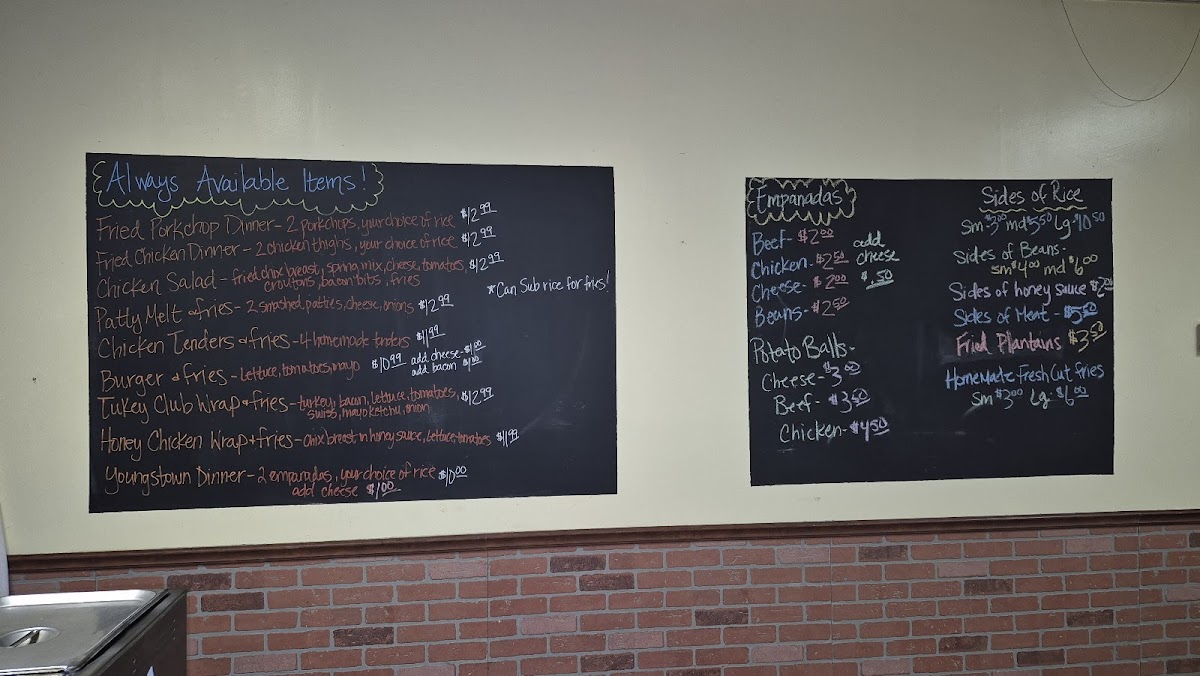 Always Available Items!
Fried Porkchop Dinner - 2 porkchops, your choice of rice $12.99
Fried Chicken Dinner - 2 chicken thighs, your choice of rice $12.99
Chicken Salad - fried chix breast, spring mix, cheese, tomatoes, $12.99
croutons, bacon bits, fries
*Can Sub rice for fries!
Patty Melt & fries - 2 smashed patties, cheese, onions $12.99
Chicken Tenders & fries - 4 homemade tenders $11.99
Burger & fries - lettuce, tomatoes, mayo $10.99 add cheese - $1.00
add bacon $1.00
Tukey Club Wrap & fries - turkey, bacon, lettuce, tomatoes, $12.99
swiss, mayoketchu, onion
Honey Chicken Wrap + fries - chix breast in honey sauce, lettuce, tomatoes $11.99
Youngstown Dinner - 2 empanadas, your choice of rice $10.00
add cheese $1.00
Empanadas
Beef - $2.00
Chicken - $2.50
Cheese - $2.00
Beans - $2.50
add
cheese
$.50
Potato Balls -
Cheese - $3.00
Beef - $3.50
Chicken - $4.50
Sides of Rice
Sm $3.00 md $5.50 Lg - $10.50
Sides of Beans -
sm $4.00 md $6.00
Sides of honey sauce $2.00
Sides of Meat - $5.50
Fried Plantains $3.50
HomeMade Fresh Cut fries
Sm $3.00 Lg - $6.00